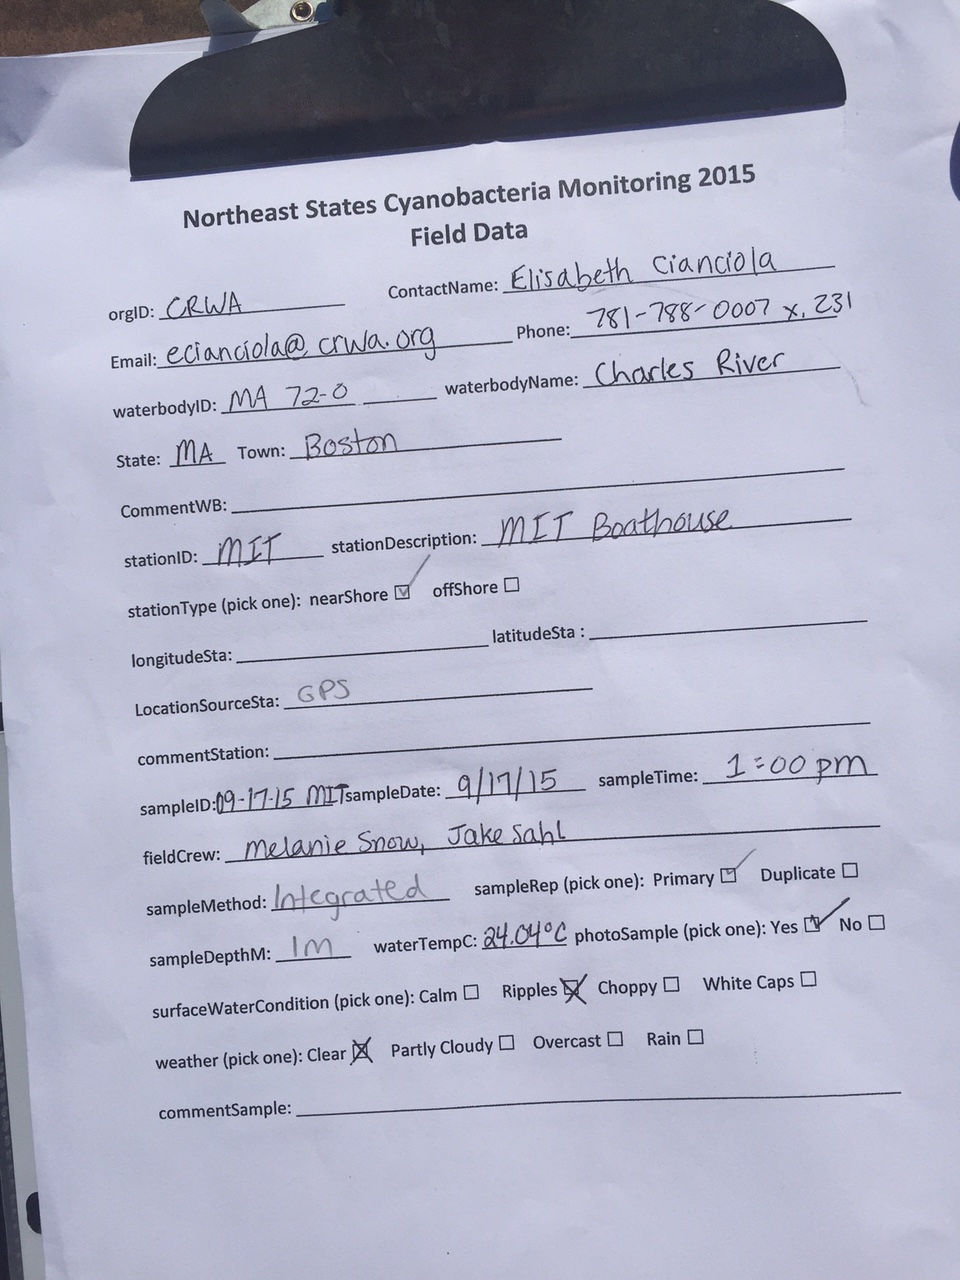 Northeast States Cyanobacteria Monitoring 2015
Field Data
orgID: CRWA ContactName: Elisabeth Cianciola
Email: ecianciola@crwa.org Phone: 781-788-0007 x. 231
waterbodyID: MA 72-0 waterbodyName: Charles River
State: MA Town: Boston
CommentWB:
stationID: MIT stationDescription: MIT Boathouse
stationType (pick one): nearShore ☑ offShore ☐
longitudeSta: latitudeSta :
LocationSourceSta: GPS
commentStation:
sampleID: 09-17-15 MIT sampleDate: 9/17/15 sampleTime: 1:00 pm
fieldCrew: Melanie Snow, Jake Sahl
sampleMethod: Integrated sampleRep (pick one): Primary ☑ Duplicate ☐
sampleDepthM: 1m waterTempC: 24.04°C photoSample (pick one): Yes ☑ No ☐
surfaceWaterCondition (pick one): Calm ☐ Ripples ☒ Choppy ☐ White Caps ☐
weather (pick one): Clear ☒ Partly Cloudy ☐ Overcast ☐ Rain ☐
commentSample: